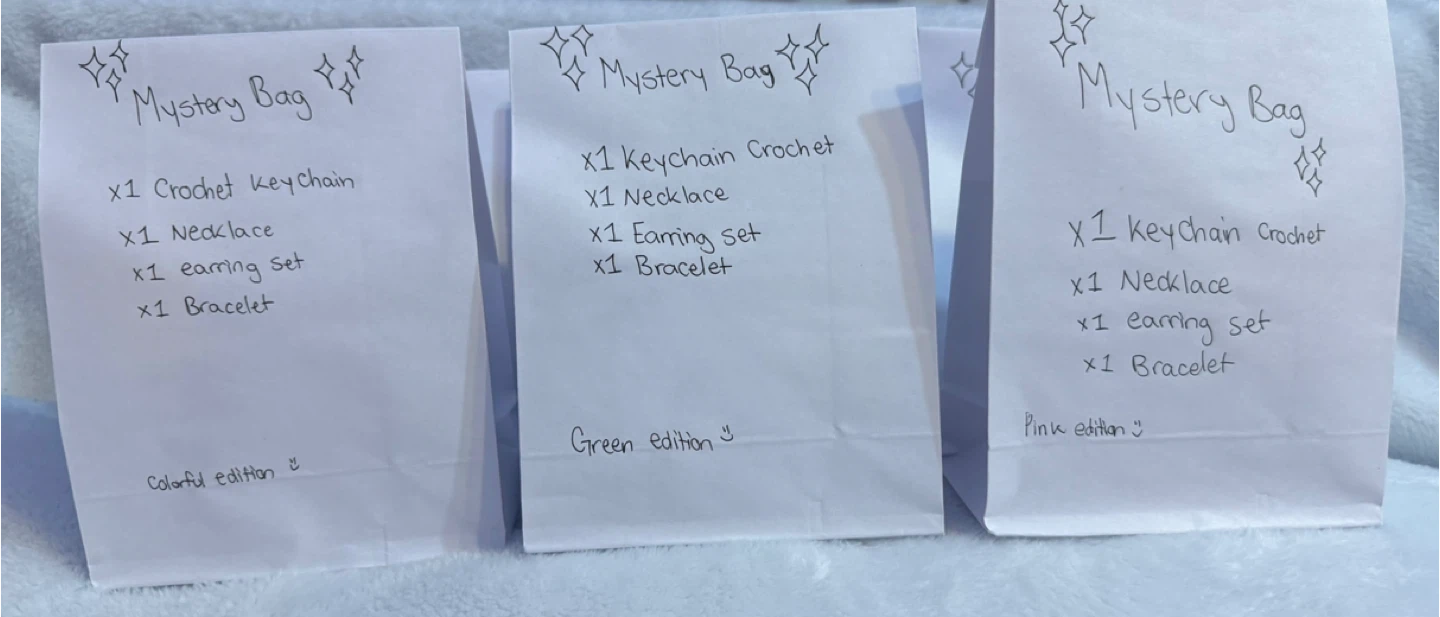 Mystery Bag
x1 Crochet Keychain
x1 Necklace
x1 earring set
x1 Bracelet
Colorful edition
Mystery Bag
x1 Keychain Crochet
x1 Necklace
x1 Earring set
x1 Bracelet
Green edition
Mystery Bag
x1 Keychain Crochet
x1 Necklace
x1 earring set
x1 Bracelet
Pink edition